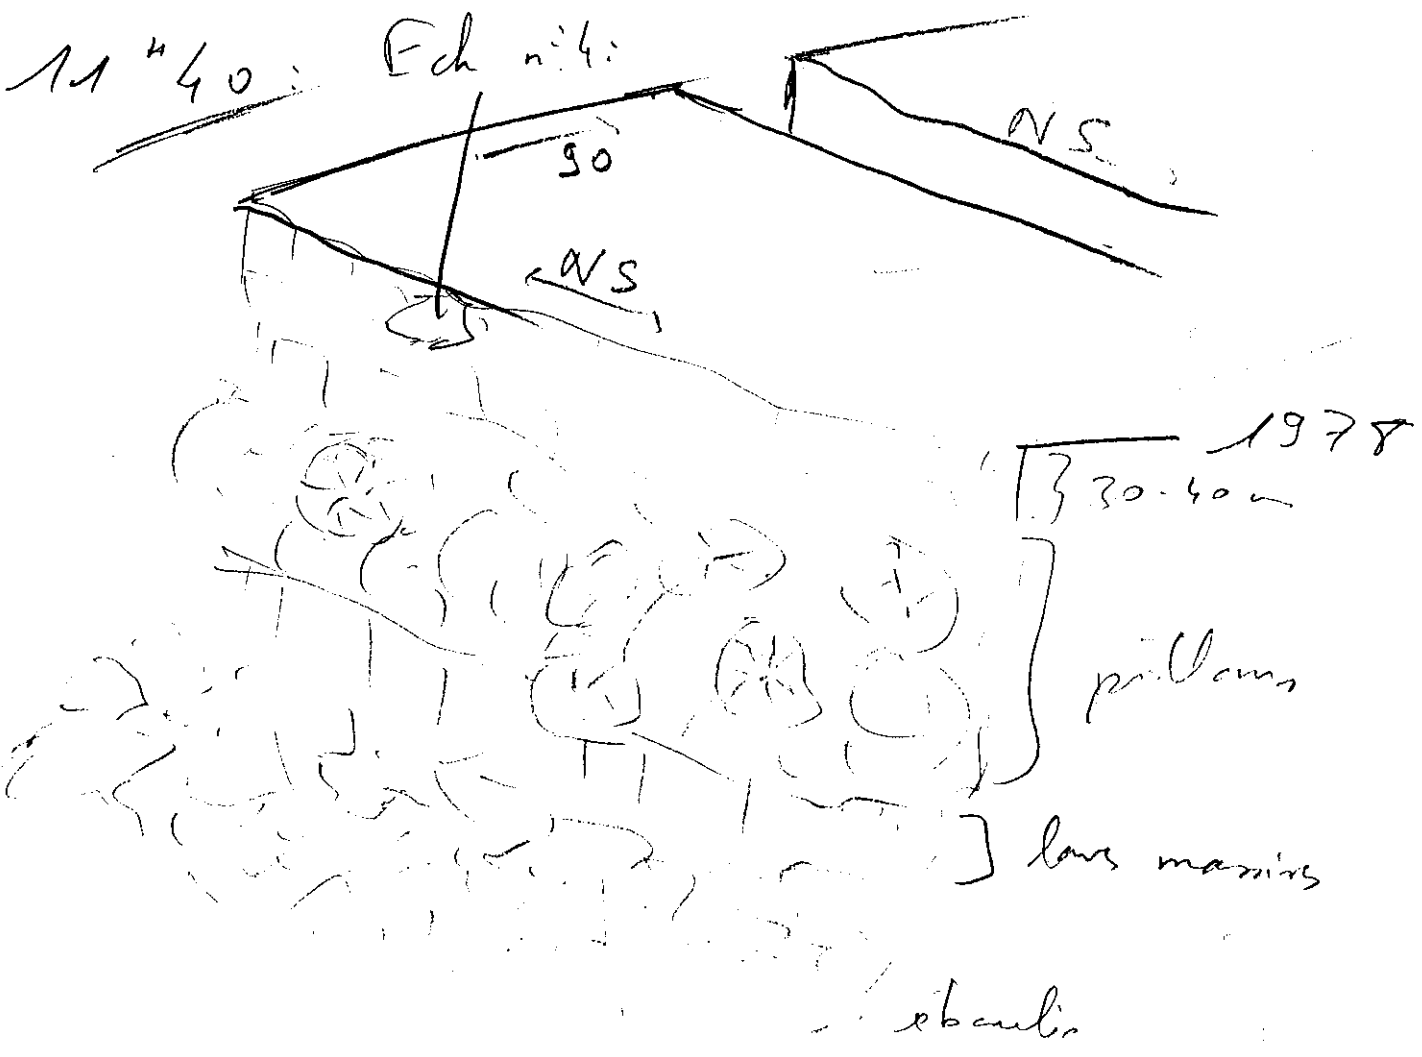 11h40: Ech n°4:
NS
90
NS
1978
30-40 m
pillows
laves massives
eboulis